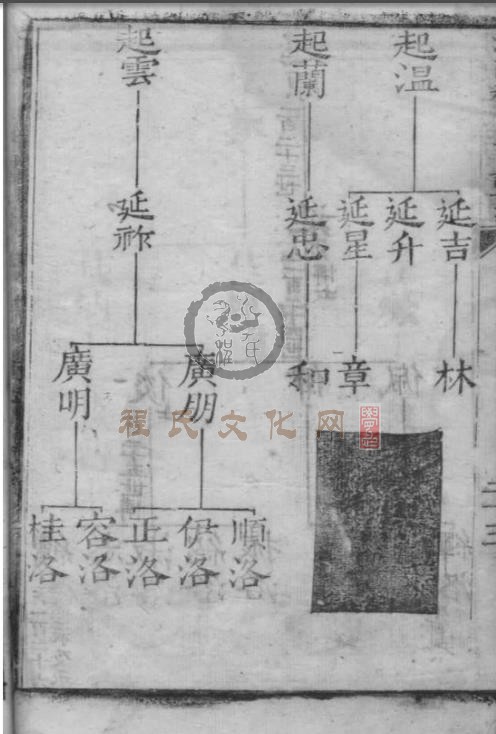 起溫
起蘭
起雲
延吉
延升
延星
延忠
延祚
林
章
和
廣朋
廣明
順洛
伊洛
正洛
容洛
桂洛
程氏文化网